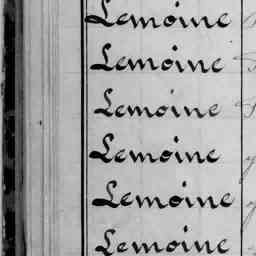 Lemoine
Lemoine
Lemoine
Lemoine
Lemoine
Lemoine